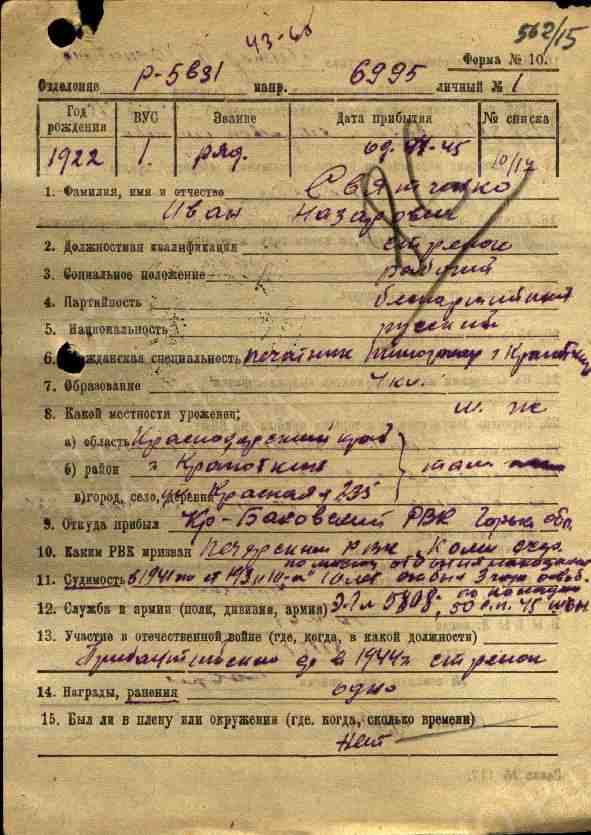 43-60
562/15
Форма № 10.
Отделение Р-5631 напр. 6995 личный № 1
Год рождения ВУС Звание Дата прибытия № списка
1922 1. ряд. 45 10/17
1. Фамилия, имя и отчество Святченко
Иван Назарович
2. Должностная квалификация стрелок
3. Социальное положение рабочий
4. Партийность беспартийный
5. Национальность русский
6. Гражданская специальность печатник г Кропоткин
7. Образование 4 кл.
8. Какой местности уроженец;
а) область Краснодарский край
б) район г Кропоткин там
в) город, село, деревня Красная д 235
9. Откуда прибыл Кр-Баковский РВК Горьк обл.
10. Каким РВК призван РВК Коми
11. Судимость в 1941 по ст 193 10 лет отбыл 3 года освоб.
12. Служба в армии (полк, дивизия, армия) Э.Г. 5808,
13. Участие в отечественной войне (где, когда, в какой должности)
в 1944г стрелок
14. Награды, ранения одно
15. Был ли в плену или окружения (где. когда, сколько времени)
Нет